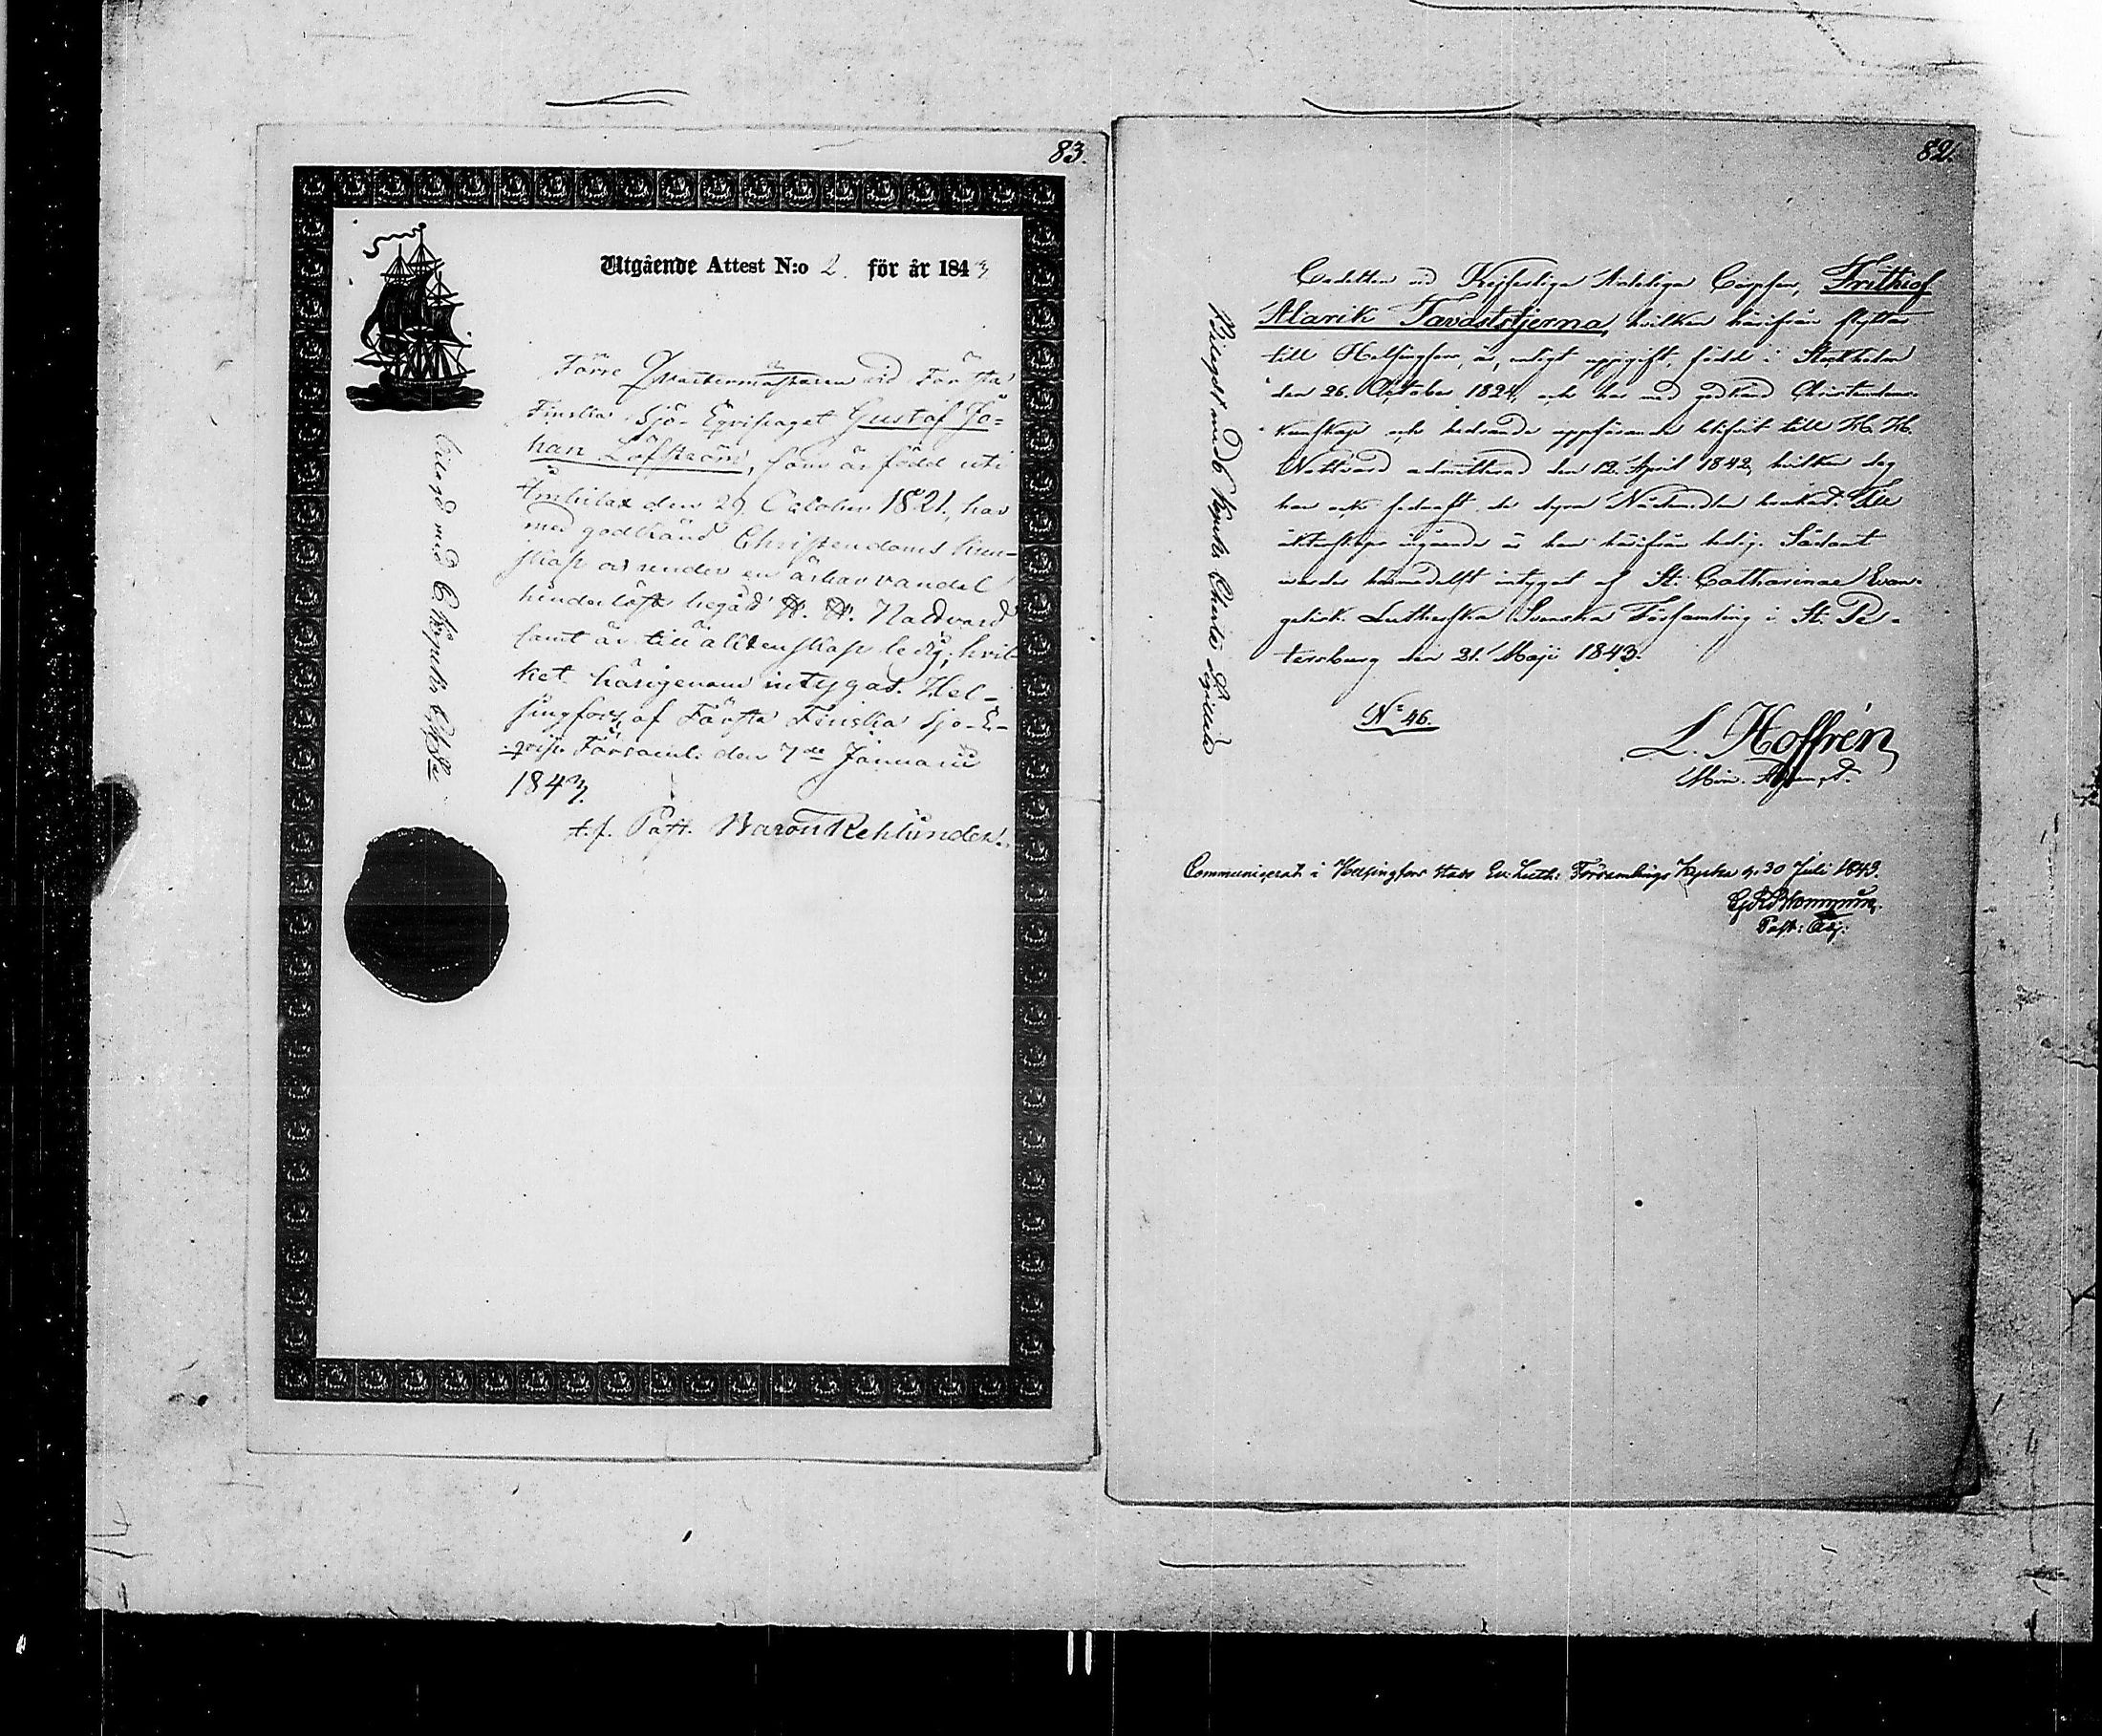 83.
Utgående Attest N:o 2. för år 1843
Förre Qvartermästaren vid Första
Finska Sjö-Eqvipaget Gustaf Jo-
han Löfström, som är född uti
den 29 October 1821, har
med godkänd Christendoms kun-
skap och under en ärbar vandel
hinderlöst begådt H. H. Nattvard
samt är till äktenskap ledig; hvil-
ket härigenom intygas. Hel-
singfors, af Första Finska Sjö-E-
qvip. Församl. den 7de Januarii
1843.
t.f. Past. Baron Rehbinder.
Belagd med 6 Kopeks
82.
Cadetten vid Kejserliga Adeliga Corpsen, Frithiof
Alarik Tavaststjerna, hvilken härifrån flyttar
till Helsingfors, är, enligt uppgift, född i Stockholm
den 26. October 1824, och har med godkänd Christendoms-
kunskap och hedrande uppförande blifvit till H. H.
Nattvard admitterad den 12. April 1842, hvilken dag
han ock sednast de dyra Nådemedlen brukad. Till
äktenskaps ingående är han härifrån ledig. Sådant
warder härmedelst intygat af St. Catharinae Evan-
gelisk Lutherska Svenska Församling i St. Pe-
tersburg den 21. Maji 1843.
No 46.
L. Hoffrén
Min. Adjunct.
Belagdt med 6 Kopeks Charta Sigillata
Communicerat i Helsingfors stads Ev: Luth: Församlings Kyrka d. 30 Juli 1843.
Past: Adj: